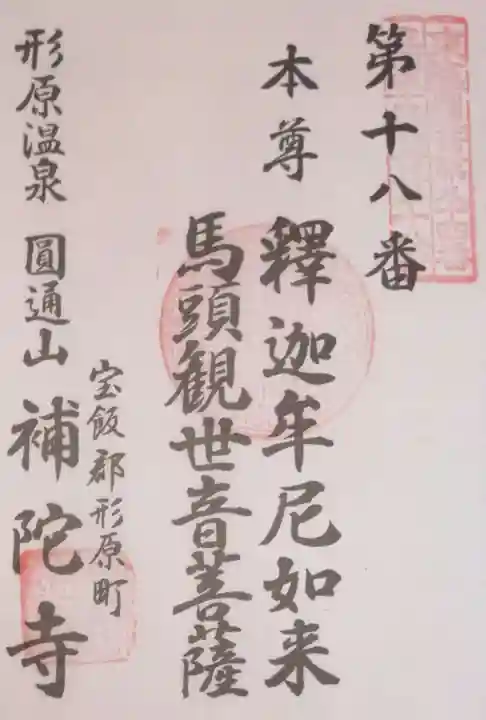 第十八番
本尊 釋迦牟尼如来
馬頭観世音菩薩
宝飯郡形原町
形原温泉 圓通山 補陀寺